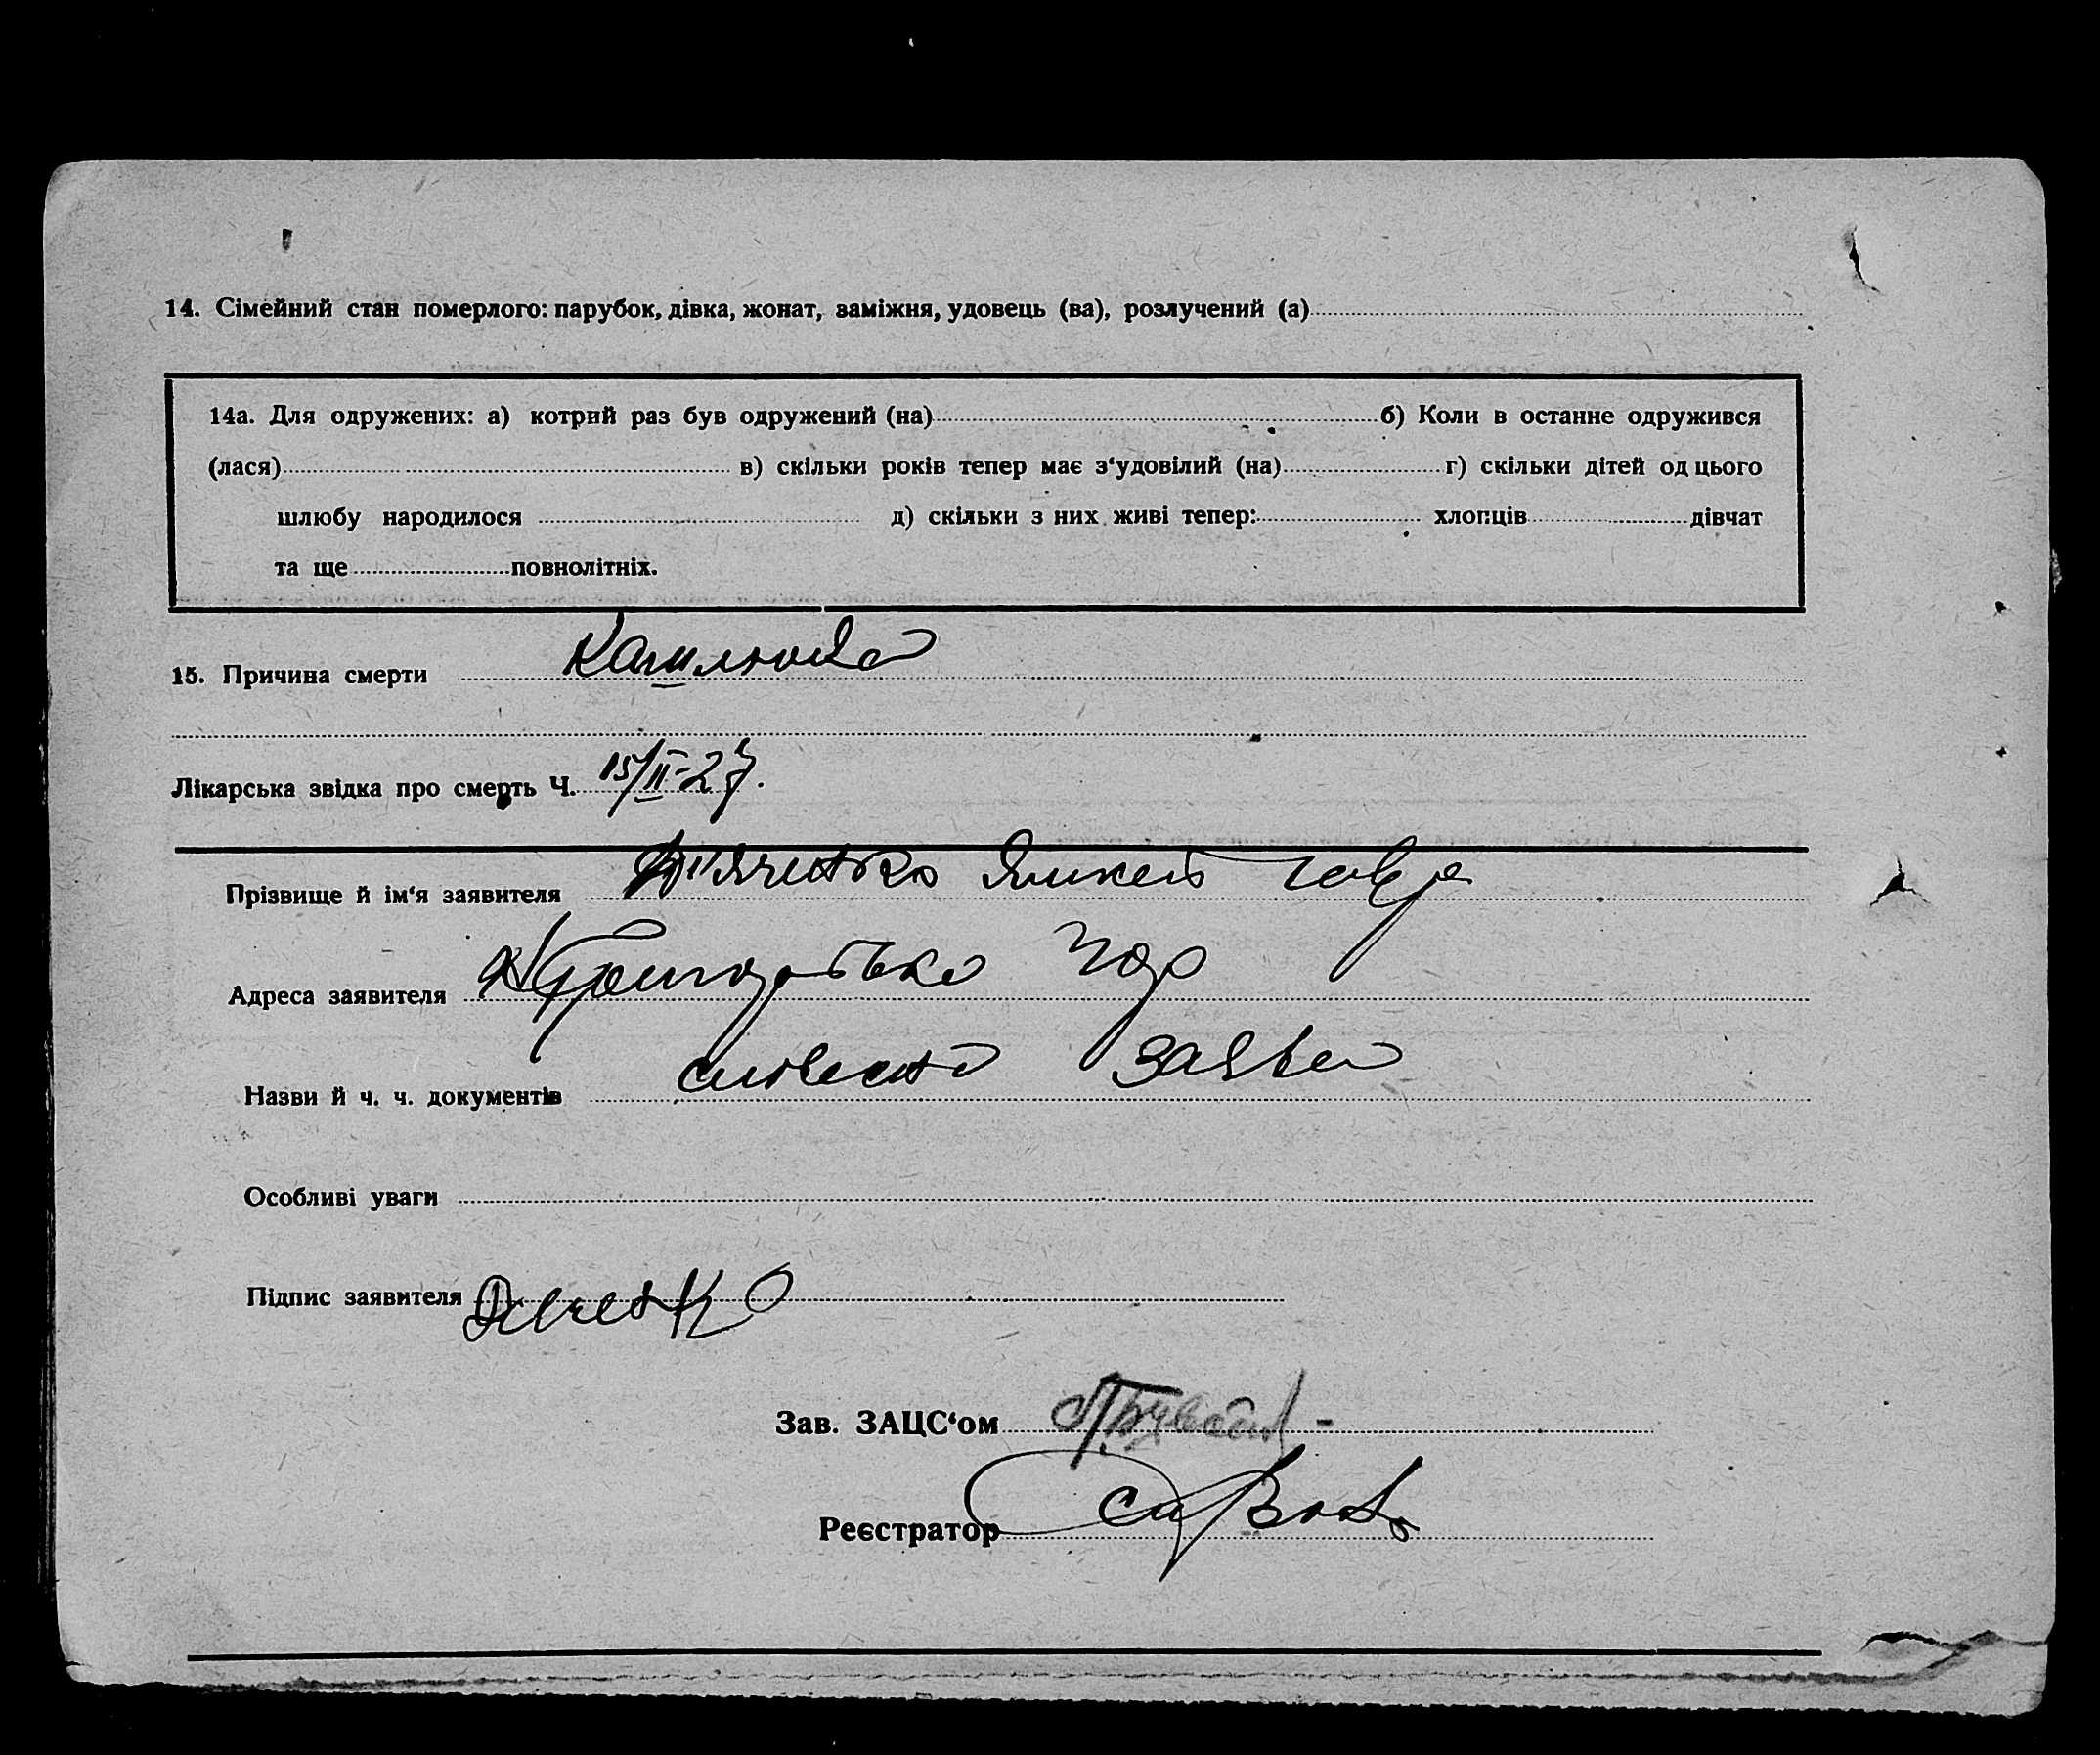 14. Сімейний стан померлого: парубок, дівка, жонат, заміжня, удовець (ва), розлучений (а)
14а. Для одружених: а) котрий раз був одружений (на) б) Коли в останнє одружився
(лася) в) скільки років тепер має з‘удовілий (на) г) скільки дітей од цього
шлюбу народилося д) скільки з них живі тепер: хлопців дівчат
та ще повнолітніх.
15. Причина смерти
Лікарська звідка про смерть Ч. 15/II-27.
Прізвище й ім‘я заявителя
Адреса заявителя
Назви й ч. ч. документів словесно заява
Особливі уваги
Підпис заявителя
Зав. ЗАЦС‘ом
Реєстратор